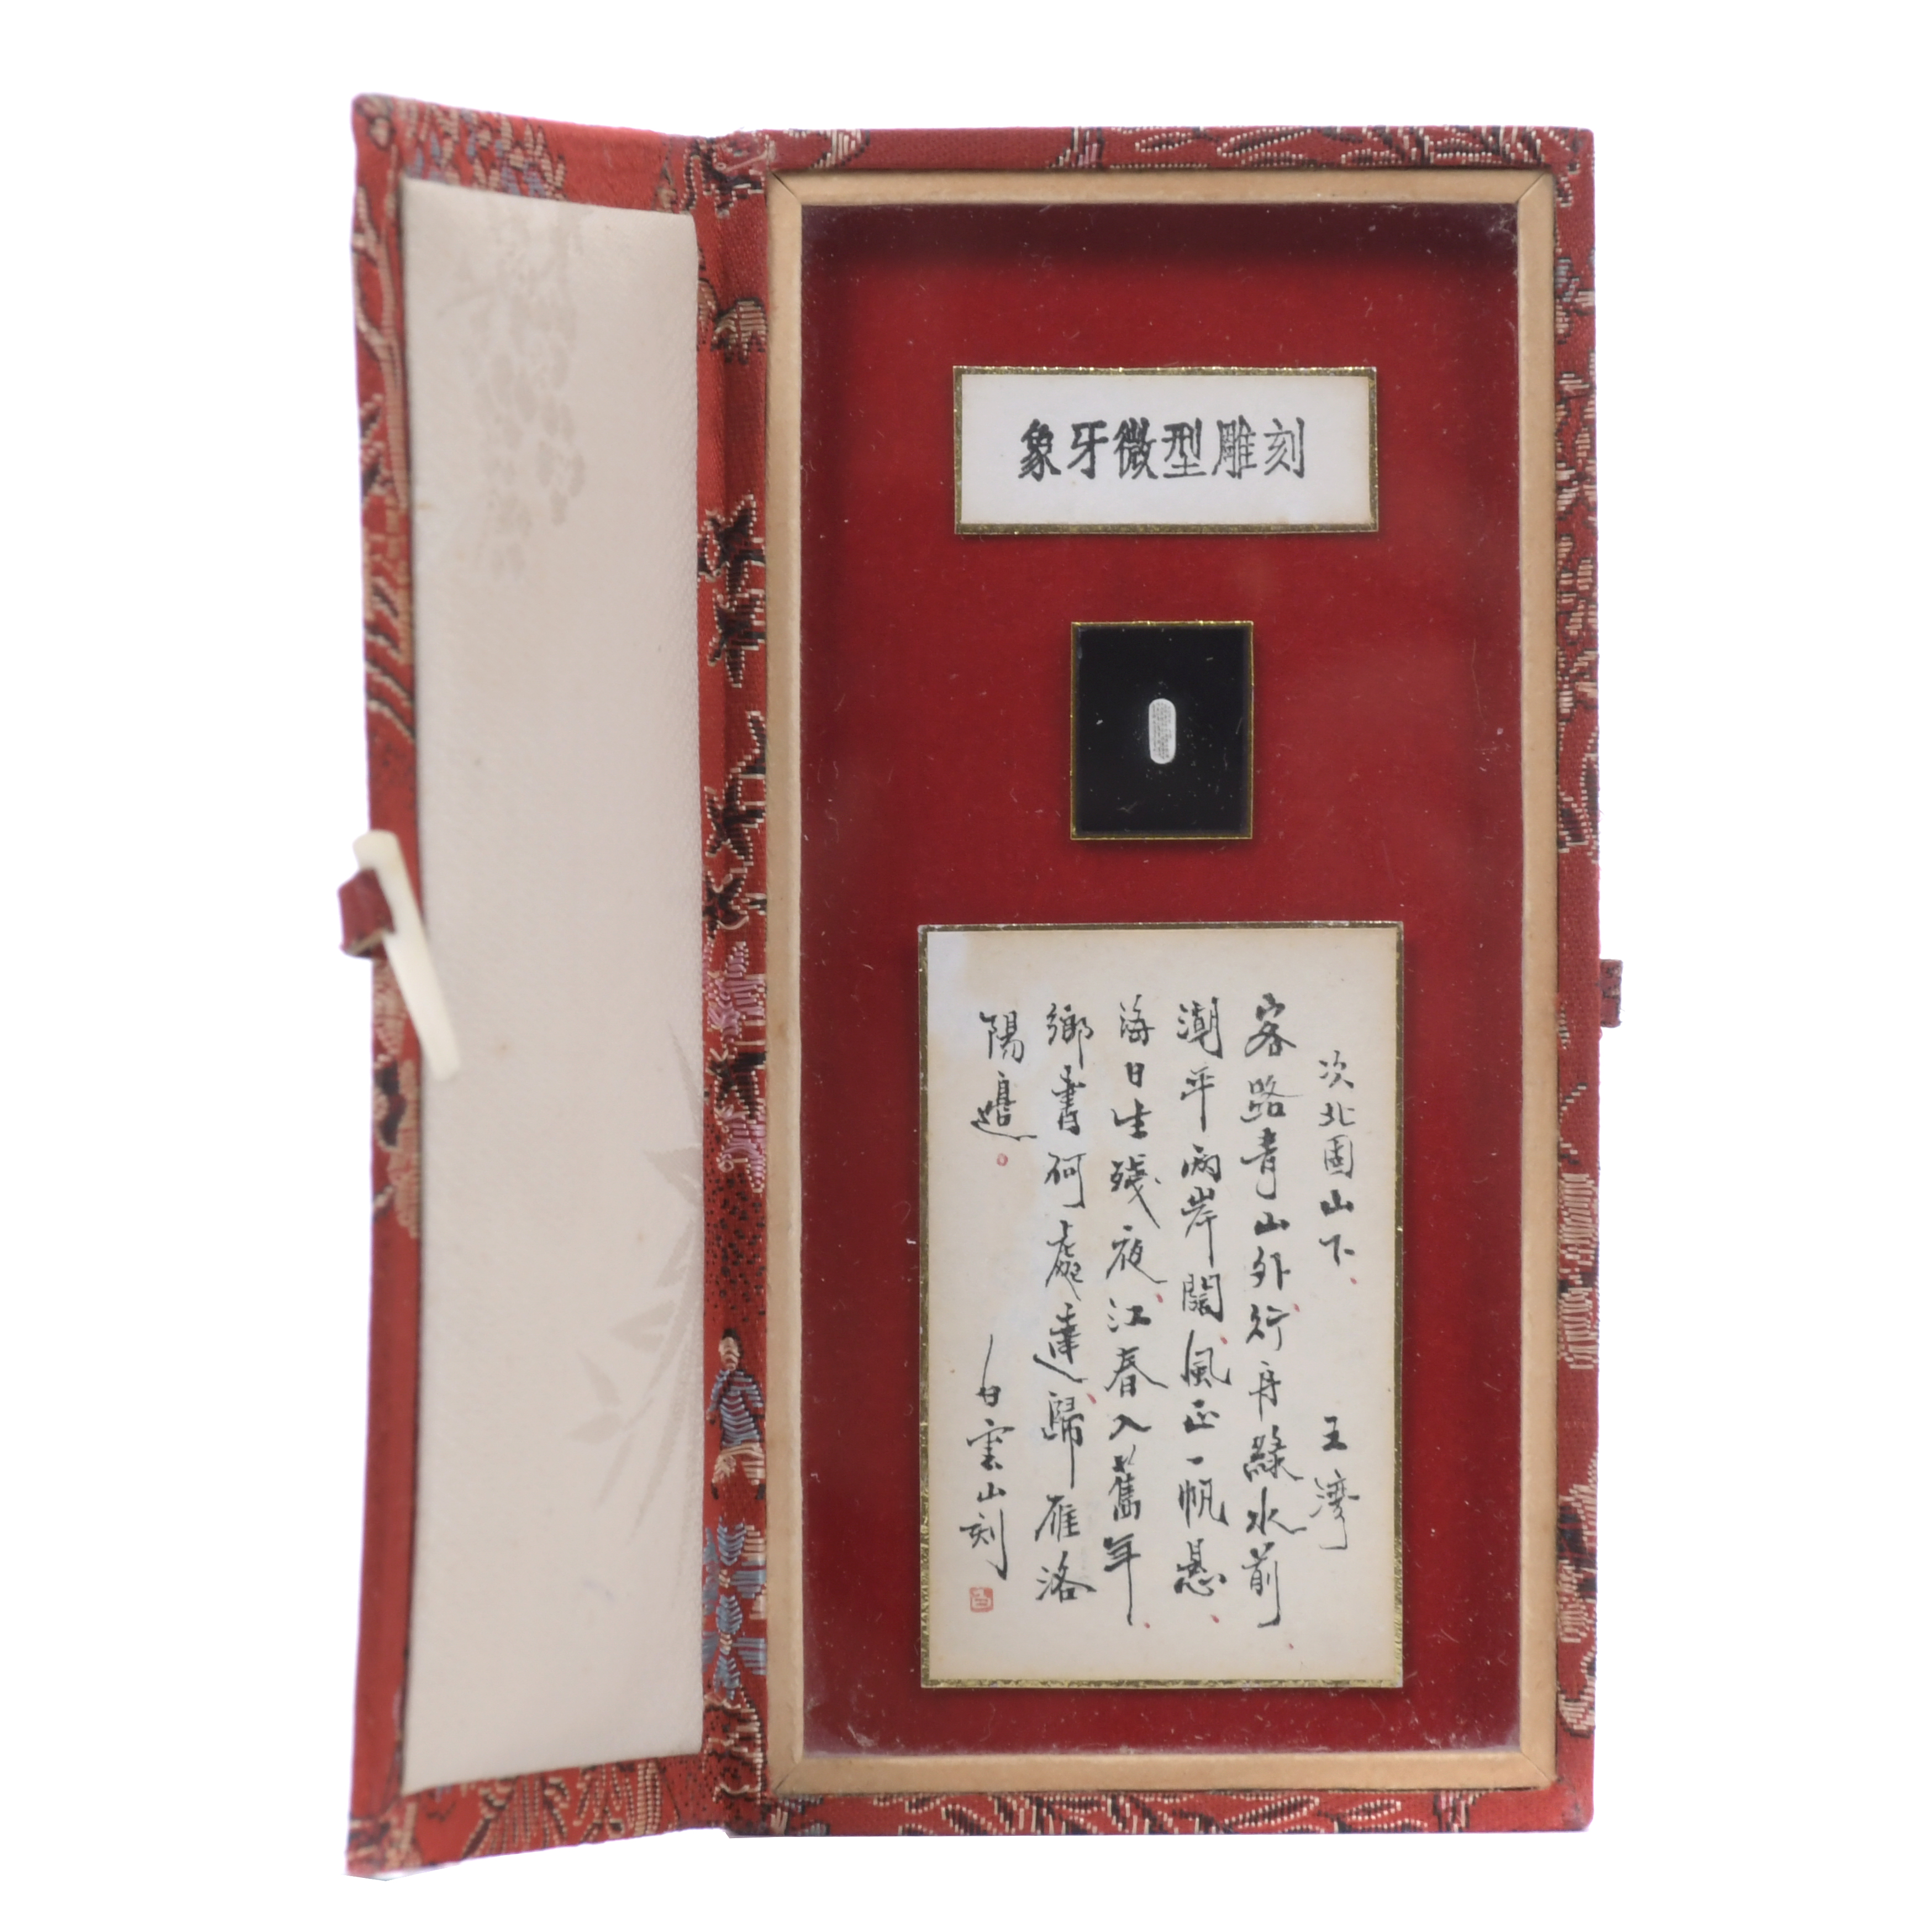 象牙微型雕刻
次北固山下 王灣
客路青山外行舟綠水前
潮平兩岸闊風正一帆悬
海日生殘夜江春入舊年
鄉書何處達歸雁洛
陽邊 白雲山刻